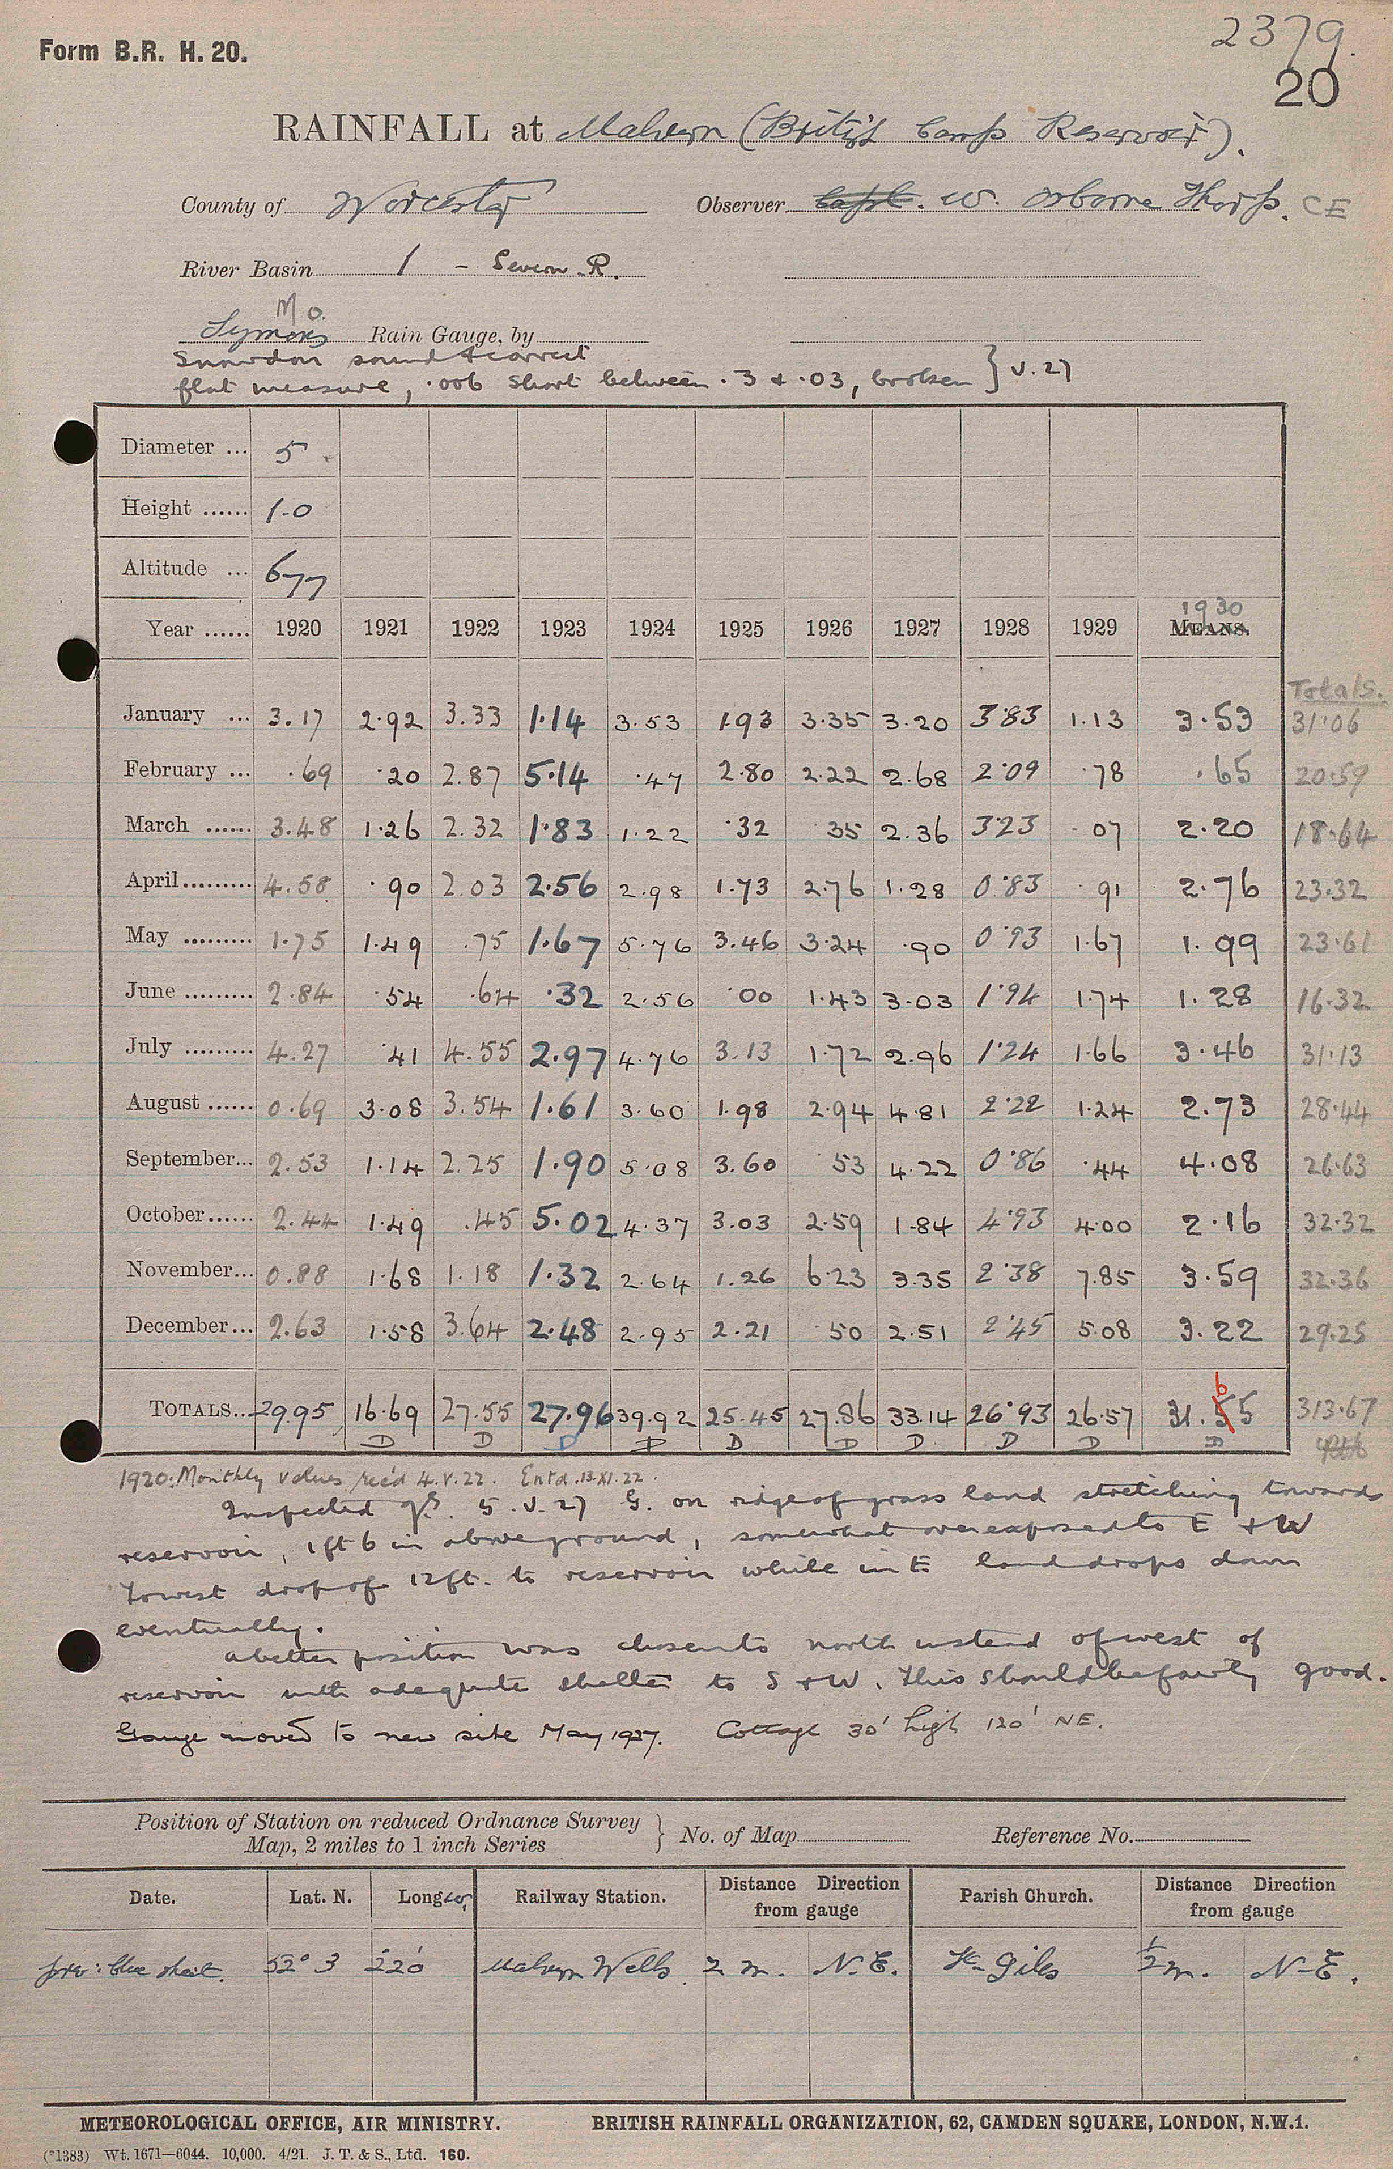 2379.
Form B.R. H. 20.
20
RAINFALL at Malvern (British Camp Reservoir).
County of Worcester Observer Capt. W. Osborne Thorp. CE
River Basin 1 - Severn R.
M O.
Symons Rain Gauge, by
Snowdon sound & correct
flat measure, .006 short between .3 & .03, broken } V.27
Diameter ... 5
Height ...... 1-0
Altitude ... 677
1930
Year ...... 1920 1921 1922 1923 1924 1925 1926 1927 1928 1929 MEANS.
Totals.
January ... 3.17 2.92 3.33 1.14 3.53 1.93 3.35 3.20 3.83 1.13 3.53 31.06
February ... .69 .20 2.87 5.14 .47 2.80 2.22 2.68 2.09 .78 .65 20.59
March ...... 3.48 1.26 2.32 1.83 1.22 .32 .35 2.36 3.23 .07 2.20 18.64
April ......... 4.58 .90 2.03 2.56 2.98 1.73 2.76 1.28 0.83 .91 2.76 23.32
May ......... 1.75 1.49 .75 1.67 5.76 3.46 3.24 .90 0.93 1.67 1.99 23.61
June ......... 2.84 .54 .64 .32 2.56 .00 1.43 3.03 1.94 1.74 1.28 16.32
July ......... 4.27 .41 4.55 2.97 4.76 3.13 1.72 2.96 1.24 1.66 3.46 31.13
August ...... 0.69 3.08 3.54 1.61 3.60 1.98 2.94 4.81 2.22 1.24 2.73 28.44
September... 2.53 1.14 2.25 1.90 5.08 3.60 .53 4.22 0.86 .44 4.08 26.63
October...... 2.44 1.49 .45 5.02 4.37 3.03 2.59 1.84 4.93 4.00 2.16 32.32
November... 0.88 1.68 1.18 1.32 2.64 1.26 6.23 3.35 2.38 7.85 3.59 32.36
December... 2.63 1.58 3.64 2.48 2.95 2.21 .50 2.51 2.45 5.08 3.22 29.25
6
TOTALS... 29.95 16.69 27.55 27.96 39.92 25.45 27.86 33.14 26.93 26.57 31.55 313.67
D D D D D D D D D D
1920. Monthly values rec'd 4.V.22. Ent'd. 13.XI.22.
Inspected 5.V.27 G. on ridge of grass land stretching towards
reservoir, 1 ft 6 in above ground, somewhat overexposed to E & W
To west drop of 12 ft. to reservoir while in E land drops down
eventually.
A better position was chosen to north instead of west of
reservoir with adequate shelter to S & W. This should be fairly good.
Gauge moved to new site May 1927. Cottage 30' high 120' NE.
Position of Station on reduced Ordnance Survey
Map, 2 miles to 1 inch Series } No. of Map Reference No.
Date. Lat. N. Long W. Railway Station. Distance from gauge Direction Parish Church. Distance from gauge Direction
prev: blue sheet. 52° 3 2 20' Malvern Wells 2 m. N.E. St. Giles ½ m. N-E.
METEOROLOGICAL OFFICE, AIR MINISTRY. BRITISH RAINFALL ORGANIZATION, 62, CAMDEN SQUARE, LONDON, N.W.1.
(*1383) Wt. 1671—6044. 10,000. 4/21. J. T. & S., Ltd. 160.